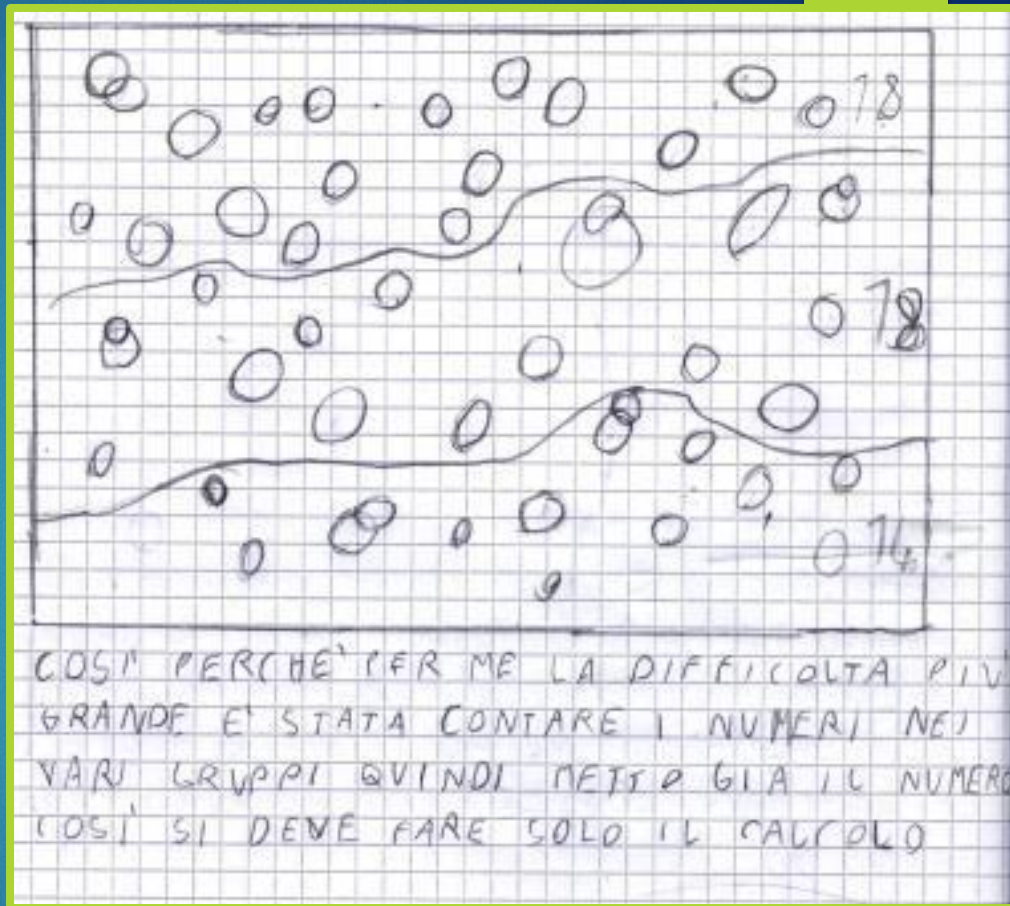 18
18
14
COSI' PERCHE' PER ME LA DIFFICOLTA PIU'
GRANDE E' STATA CONTARE I NUMERI NEI
VARI GRUPPI QUINDI METTO GIA IL NUMERO
COSI' SI DEVE FARE SOLO IL CALCOLO